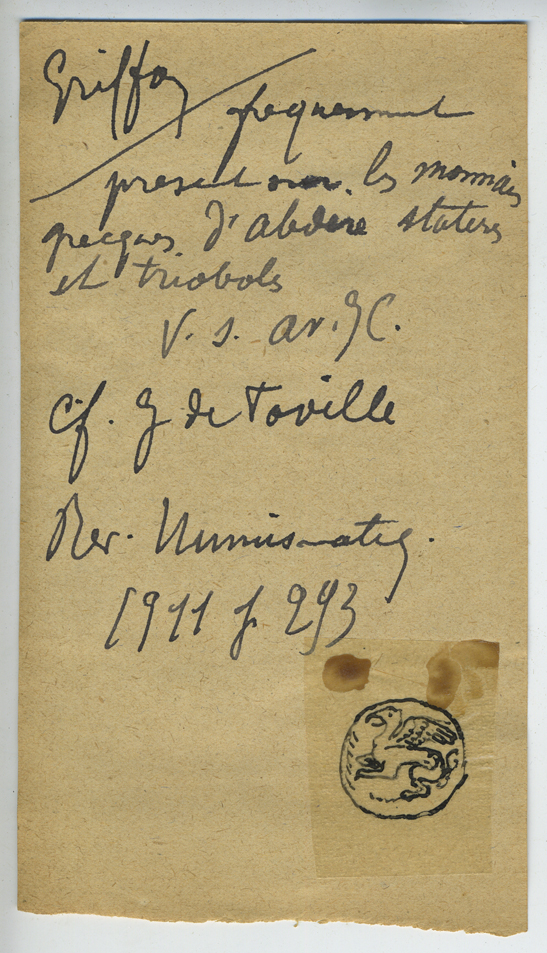 Griffon
frequemment
present sur les monnaies
grecques d'abdere stateres
et trioboles
V. s. av. J C.
Cf. J de Foville
Rev. Numismatiq.
1911 p. 293